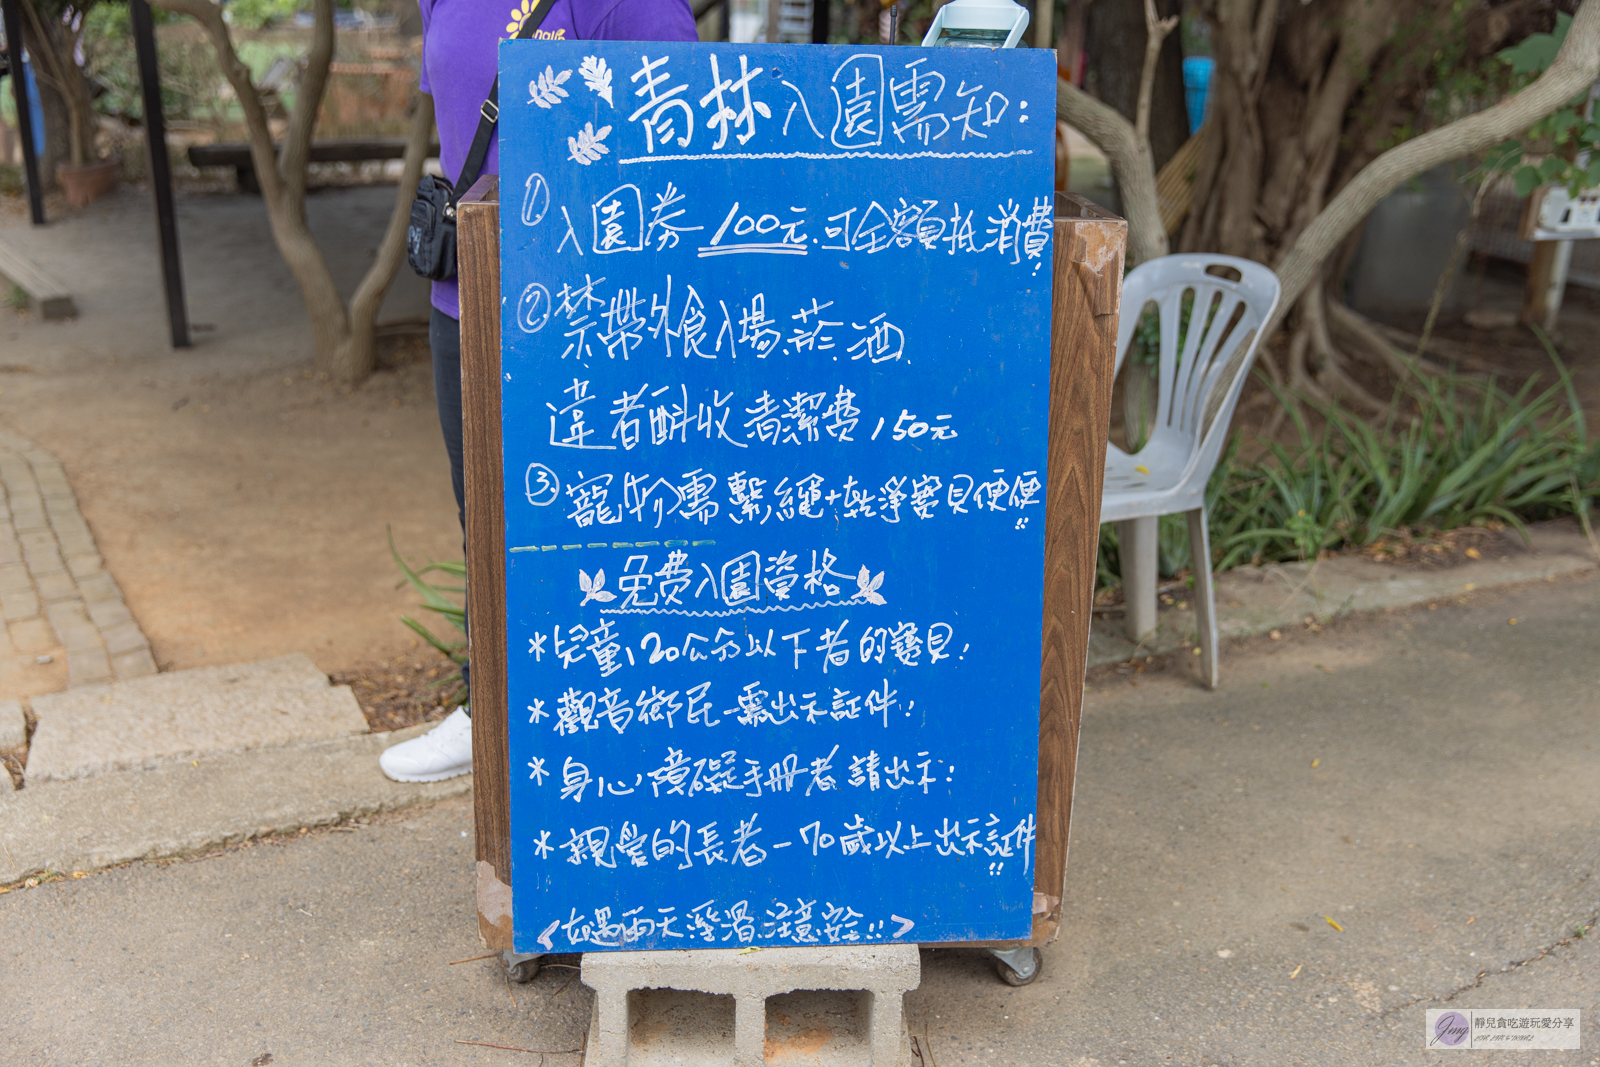 青林入園需知:
1. 入園券 100元.可全額抵消費!
② 禁帶外食入場.菸.酒.
違者酙收清潔費150元
③. 寵物需繫繩+乾淨寶貝便便!!
免費入園資格
*兒童120公分以下者的寶貝!
*觀音鄉民-需出示証件!
*身心障礙手冊者請出示!
*親愛的長者-70歲以上出示証件!!
<如遇雨天溼滑.注意安全!!>
靜兒貪吃遊玩愛分享
Jing